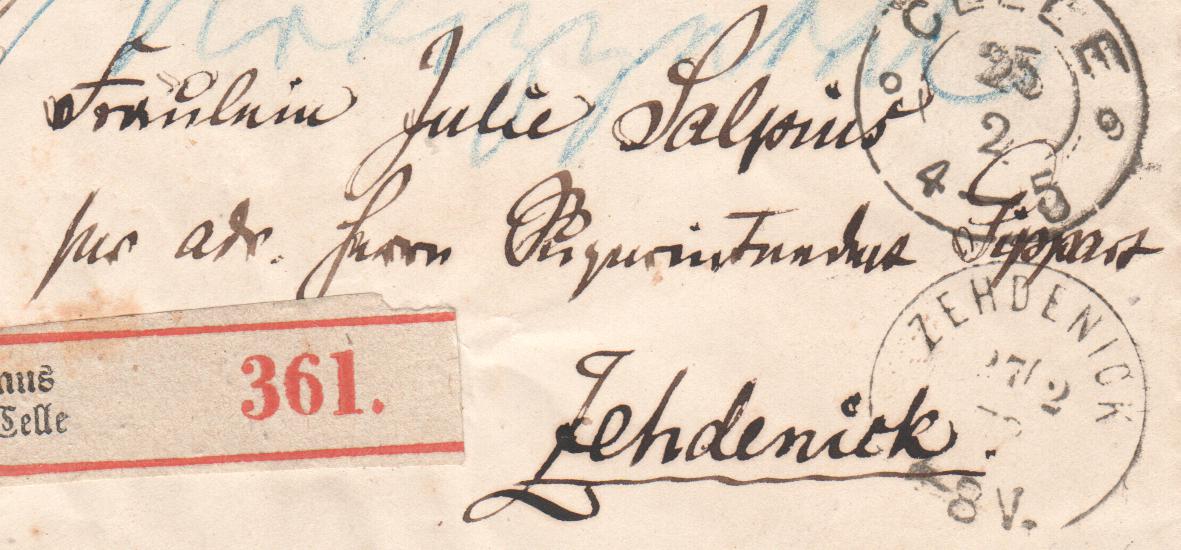 Fräulein Julie Salpius
per adr. Herrn Superintendent Sippart
Zehdenick.
aus
Celle
361.
CELLE
25
2
4-5
ZEHDENICK
27/2
8 V.